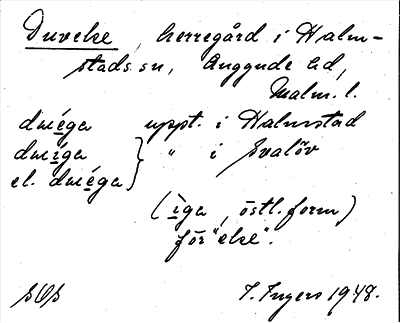 Duveke, herregård i Halm-
stads sn, Onggude hd,
Malm. l.
dwéga uppt. i Halmstad
dwíga } " i Svalöv
el. dwéga
(ìga, östl. form)
för "eke".
SOS I. Ingers 1948.